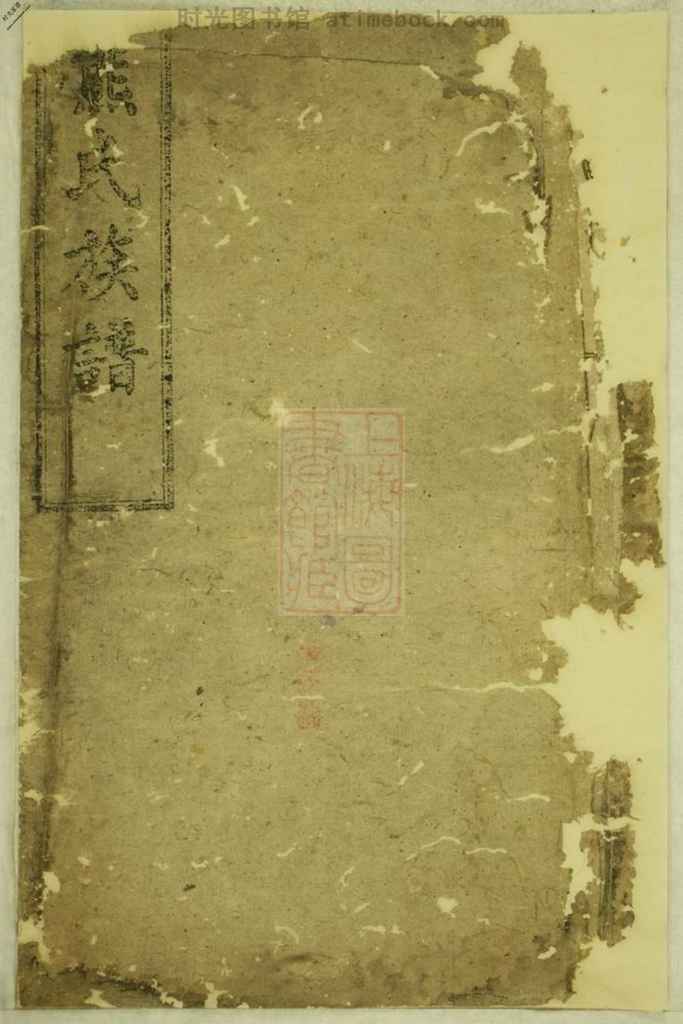 时光图书馆 atimebook.com
氏族譜
上海圖
書館藏